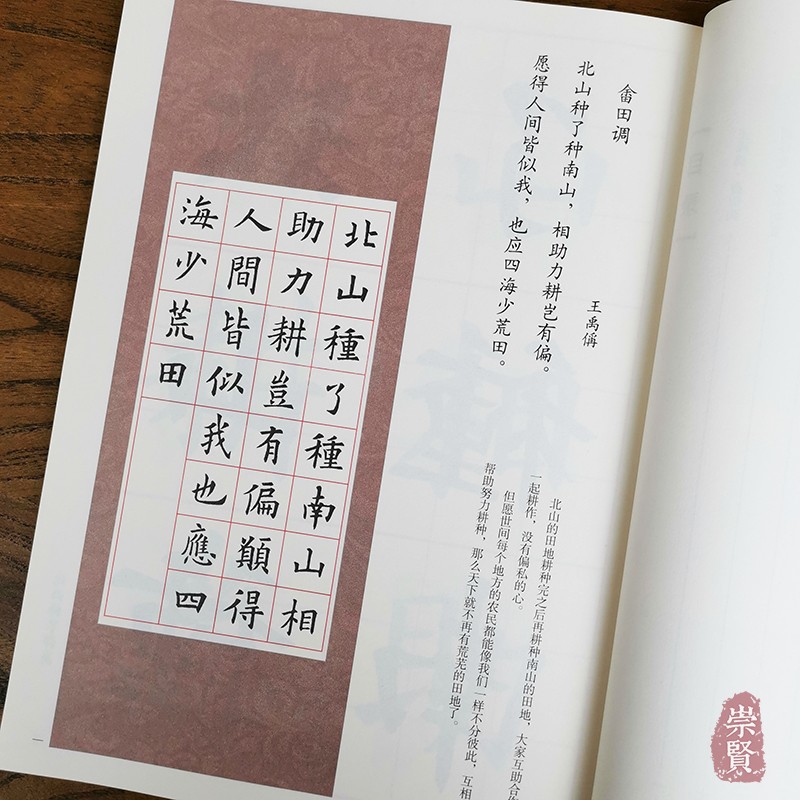 畬田调
王禹偁
北山种了种南山，相助力耕岂有偏。
愿得人间皆似我，也应四海少荒田。
北山的田地耕种完之后再耕种南山的田地，大家互助合作
一起耕作，没有偏私的心。
但愿世间每个地方的农民都能像我们一样不分彼此，互相
帮助努力耕种，那么天下就不再有荒芜的田地了。
北山種了種南山相
助力耕豈有偏願得
人間皆似我也應四
海少荒田
一
崇賢